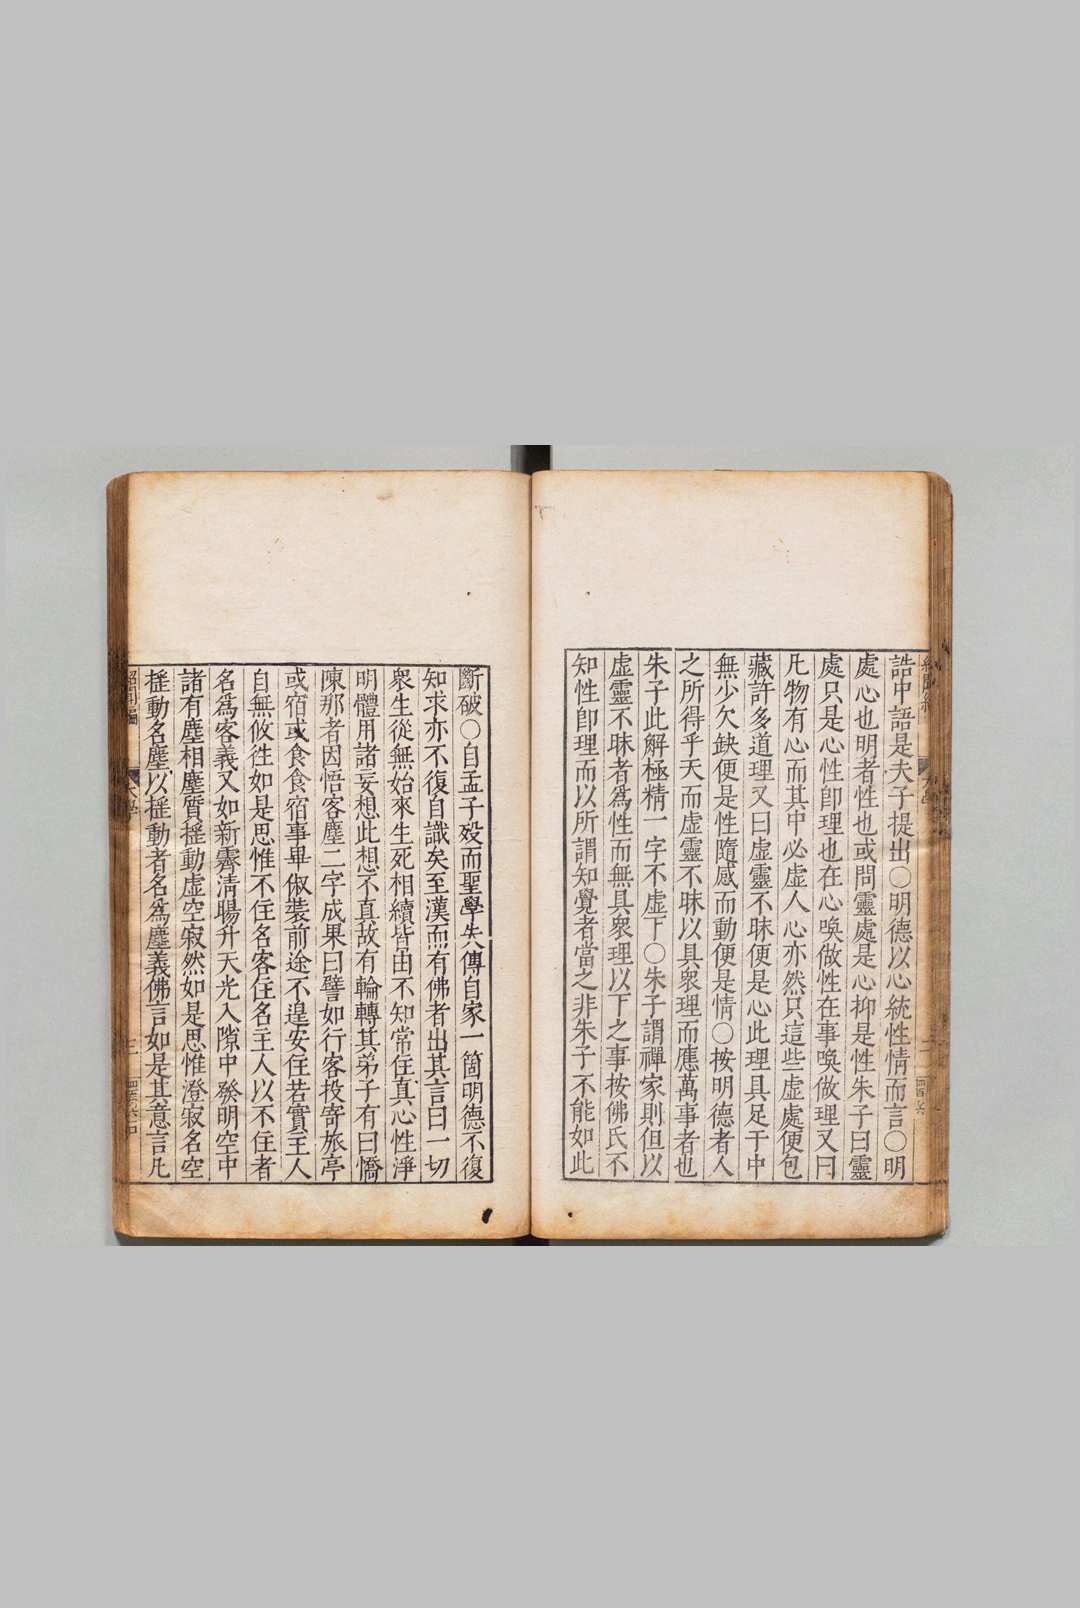 誥中語是夫子提出〇明德以心統性情而言〇明
處心也明者性也或問靈處是心抑是性朱子曰靈
處只是心性卽理也在心喚做性在事喚做理又曰
凡物有心而其中必虛人心亦然只這些虛處便包
藏許多道理又曰虛靈不昧便是心此理具足于中
無少欠缺便是性隨感而動便是情〇按明德者人
之所得乎天而虛靈不昧以具衆理而應萬事者也
朱子此解極精一字不虛下〇朱子謂禪家則但以
虛靈不昧者爲性而無具衆理以下之事按佛氏不
知性卽理而以所謂知覺者當之非朱子不能如此
斷破〇自孟子歿而聖學失傳自家一箇明德不復
知求亦不復自識矣至漢而有佛者出其言曰一切
衆生從無始來生死相續皆由不知常住真心性淨
明體用諸妄想此想不真故有輪轉其弟子有曰憍
陳那者因悟客塵二字成果曰譬如行客投寄旅亭
或宿或食食宿事畢俶裝前途不遑安住若實主人
自無攸徃如是思惟不住名客住名主人以不住者
名爲客義又如新霽清暘升天光入隙中發明空中
諸有塵相塵質揺動虛空寂然如是思惟澄寂名空
揺動名塵以揺動者名爲塵義佛言如是其意言凡
紹聞編
大學